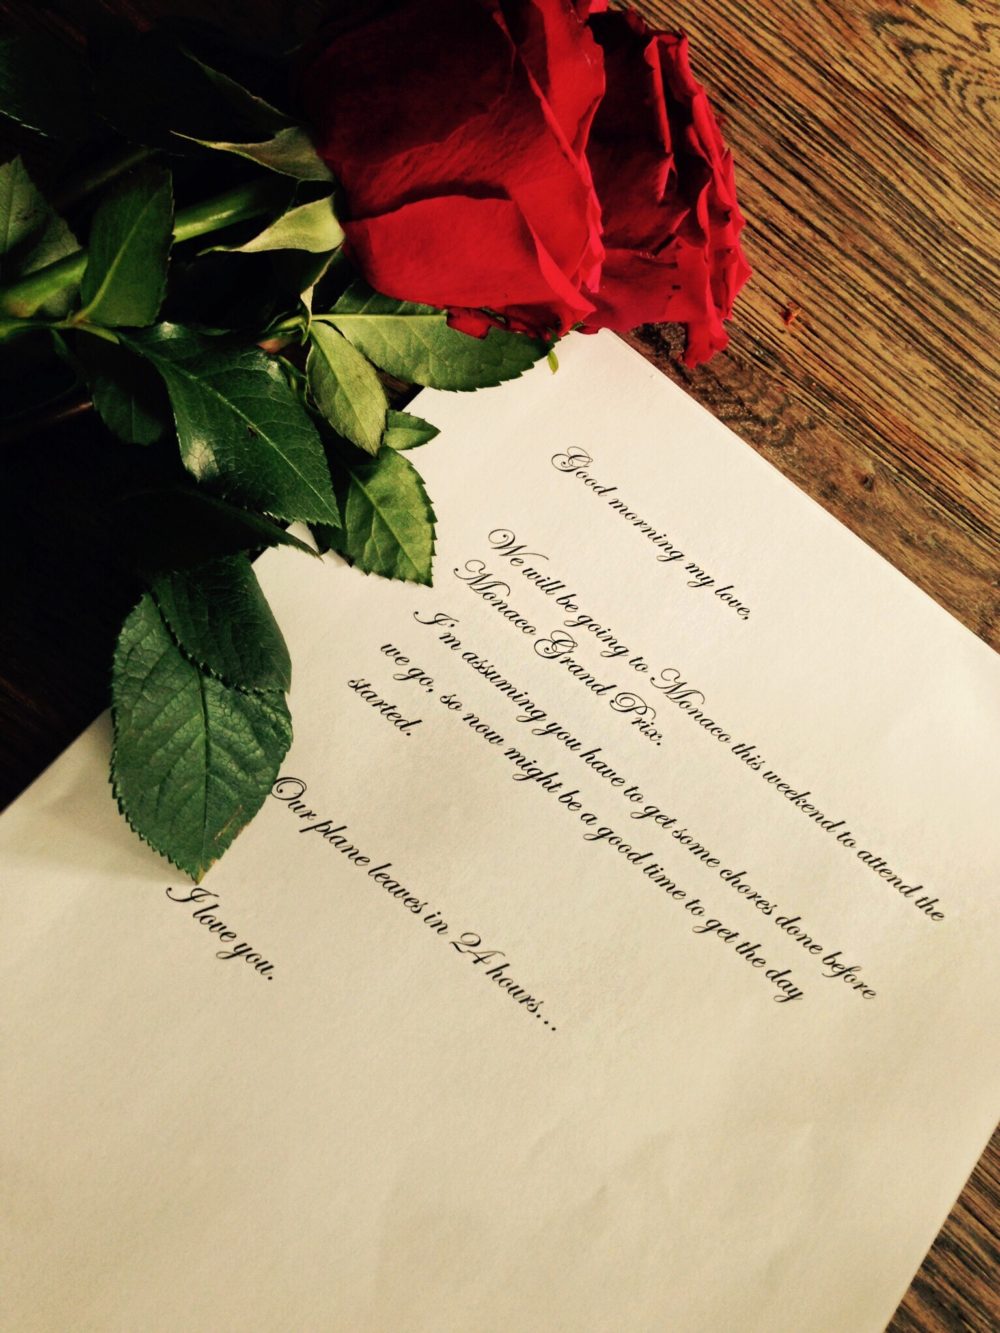 Good morning my love,
We will be going to Monaco this weekend to attend the
Monaco Grand Prix.
I'm assuming you have to get some chores done before
we go, so now might be a good time to get the day
started.
Our plane leaves in 24 hours...
I love you.